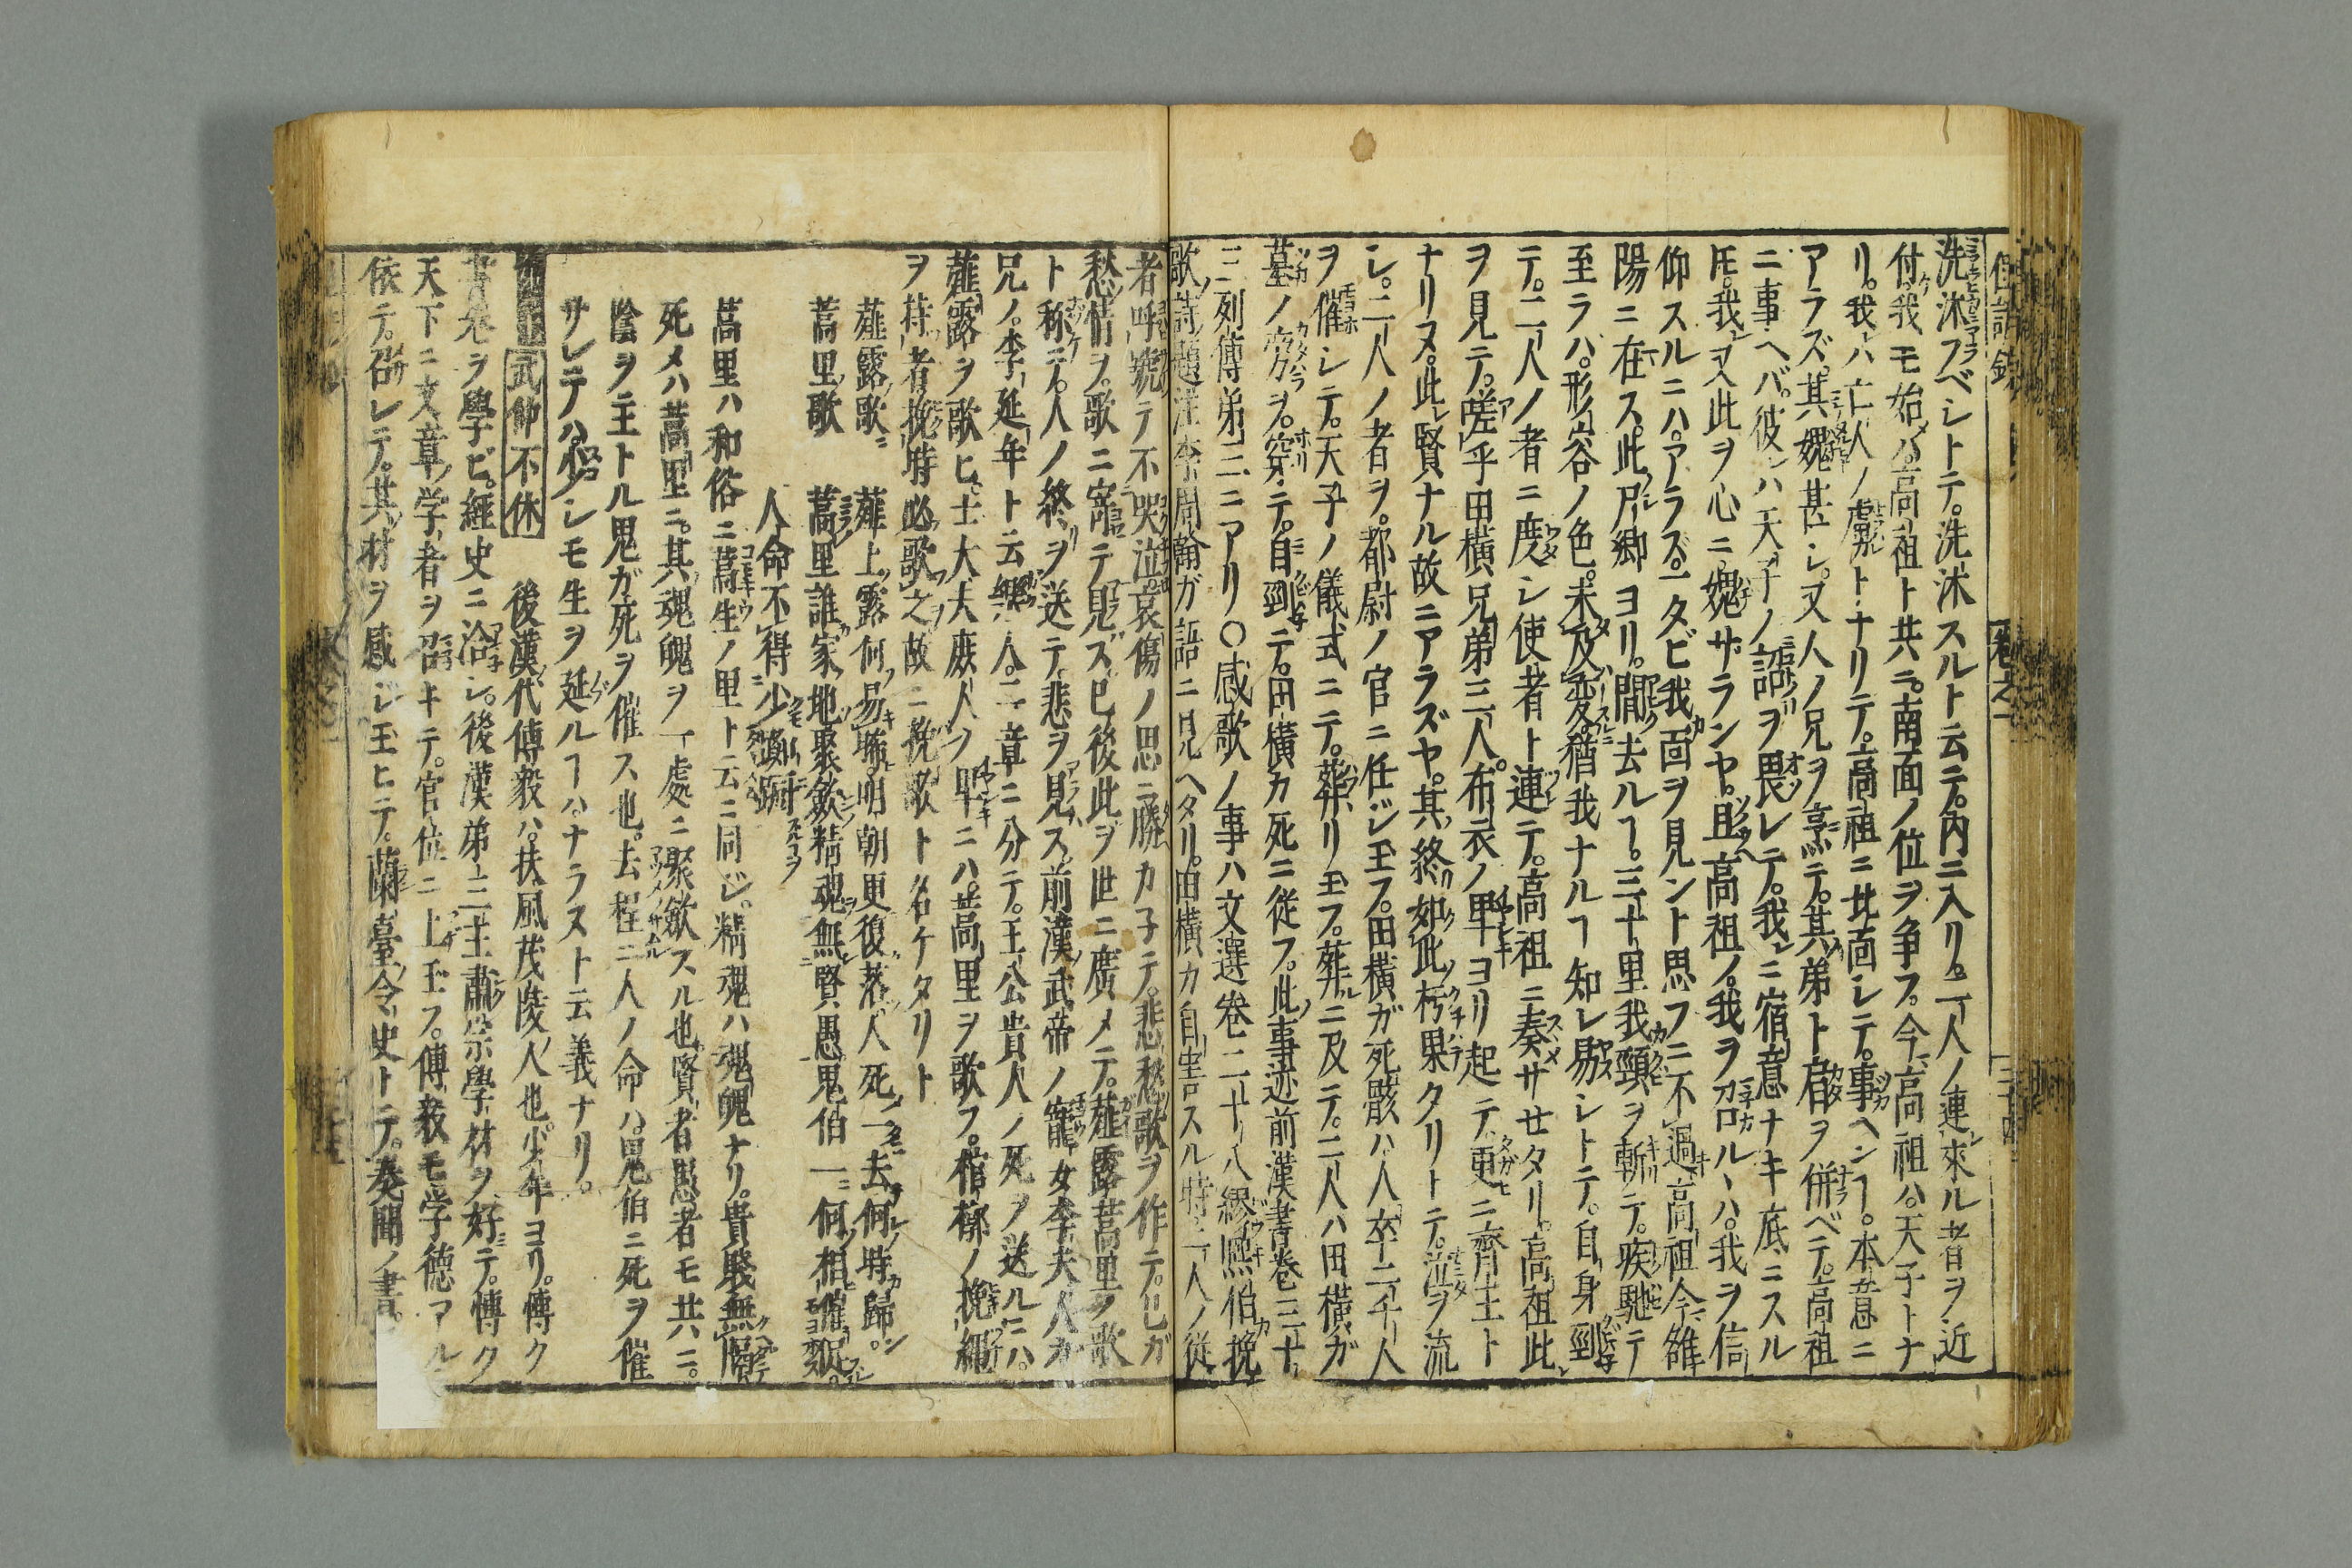 洗沐フベシトテ。洗沐スルト云テ。内ニ入リ。二人ノ連來ル者ヲ近
付。我モ始ハ高祖ト共ニ。南面ノ位ヲ争フ。今高祖ハ。天子トナ
リ。我ハ亡人ノ虜トナリテ。高祖ニ北面シテ。事ヘンヿ。本意ニ
アラズ。其媿甚シ。又人ノ兄ヲ烹テ。其弟ト肩ヲ併ベテ。高祖
ニ事ヘバ。彼レハ天子ノ詔ヲ畏レテ。我ニ宿意ナキ底ニスル
圧。我レ又此ヲ心ニ媿ザランヤ。且高祖ノ。我ヲ召ルヽハ。我ヲ信
仰スルニハ。アラズ。一タビ我面ヲ見ント思フニ不過。高祖今雒
陽ニ在ス。此尸郷ヨリ。間去ルヿ。三十里我頸ヲ斬テ。疾馳テ
至ラハ。形容ノ色。未及変。猶我ナルヿ知レ易シトテ。自身剄
テ。二人ノ者ニ度シ使者ト連テ。高祖ニ奏サセタリ。高祖此
ヲ見テ。嗟乎田横兄弟三人。布衣ノ卑ヨリ起テ。更ニ齊王ト
ナリヌ。此レ賢ナル故ニアラズヤ。其終如此朽果タリトテ。泣ヲ流
シ。二人ノ者ヲ。都尉ノ官ニ任ジ玉フ。田横ガ死骸ハ。人卒二千人
ヲ催シテ。天子ノ儀式ニテ。葬リ玉フ。葬ニ及テ。二人ハ田横ガ
墓ノ旁ヲ。穿テ。自剄テ。田横カ死ニ従フ。此事迹前漢書巻三十
三列傳第三ニアリ〇感歌ノ事ハ文選巻二十八繆熙伯挽
歌詩題注李周翰ガ語ニ見ヘタリ。田横カ自害スル時二人ノ従
者呼號テ不哭泣。哀傷ノ思ニ勝カ子テ。悲愁歌ヲ作テ。已ガ
愁情ヲ。歌ニ寄テ見ズ。已後此ヲ世ニ廣メテ。薤露蒿里ノ歌
ト称テ。人ノ終ヲ送テ。悲ヲ見ス。前漢武帝ノ寵女李夫人ガ
兄ノ。李延年ト云樂人。二章ニ分テ。王公貴人ノ死ヲ送ルニハ。
薤露ヲ歌ヒ。士大夫庶人ノ卑ニハ。蒿里ヲ歌フ。棺槨ノ挽縄
ヲ持者挽時必歌之故ニ挽歌ト名ケタリト
薤露歌ニ　薤上露何易晞明朝更復落人死一去何時歸。
蒿里歌　蒿里誰家地聚斂精魂無賢愚鬼伯一何相催促
人命不得少踟蹰
蒿里ハ和俗ニ蒿生ノ里ト云ニ同ジ。精魂ハ魂魄ナリ。貴賤無隔
死メハ蒿里ニ。其魂魄ヲ一處ニ聚斂スル也。賢者愚者モ共ニ。
陰ヲ主トル鬼ガ死ヲ催ス也。去程ニ人ノ命ハ。鬼伯ニ死ヲ催
サレテハ。少シモ生ヲ延ルヿハ。ナラスト云義ナリ。
武仲不休　後漢代傅毅ハ。扶風茂陵人也。少年ヨリ。博ク
書巻ヲ學ビ。經史ニ洽シ。後漢第三主肅宗學材ヲ好テ。博ク
天下ニ文章ノ学者ヲ召キテ。官位ニ上玉フ。傅毅モ学徳アル
依テ。召レテ。其材ヲ感ジ玉ヒテ。蘭臺令史トテ。奏聞ノ書。
巻之一